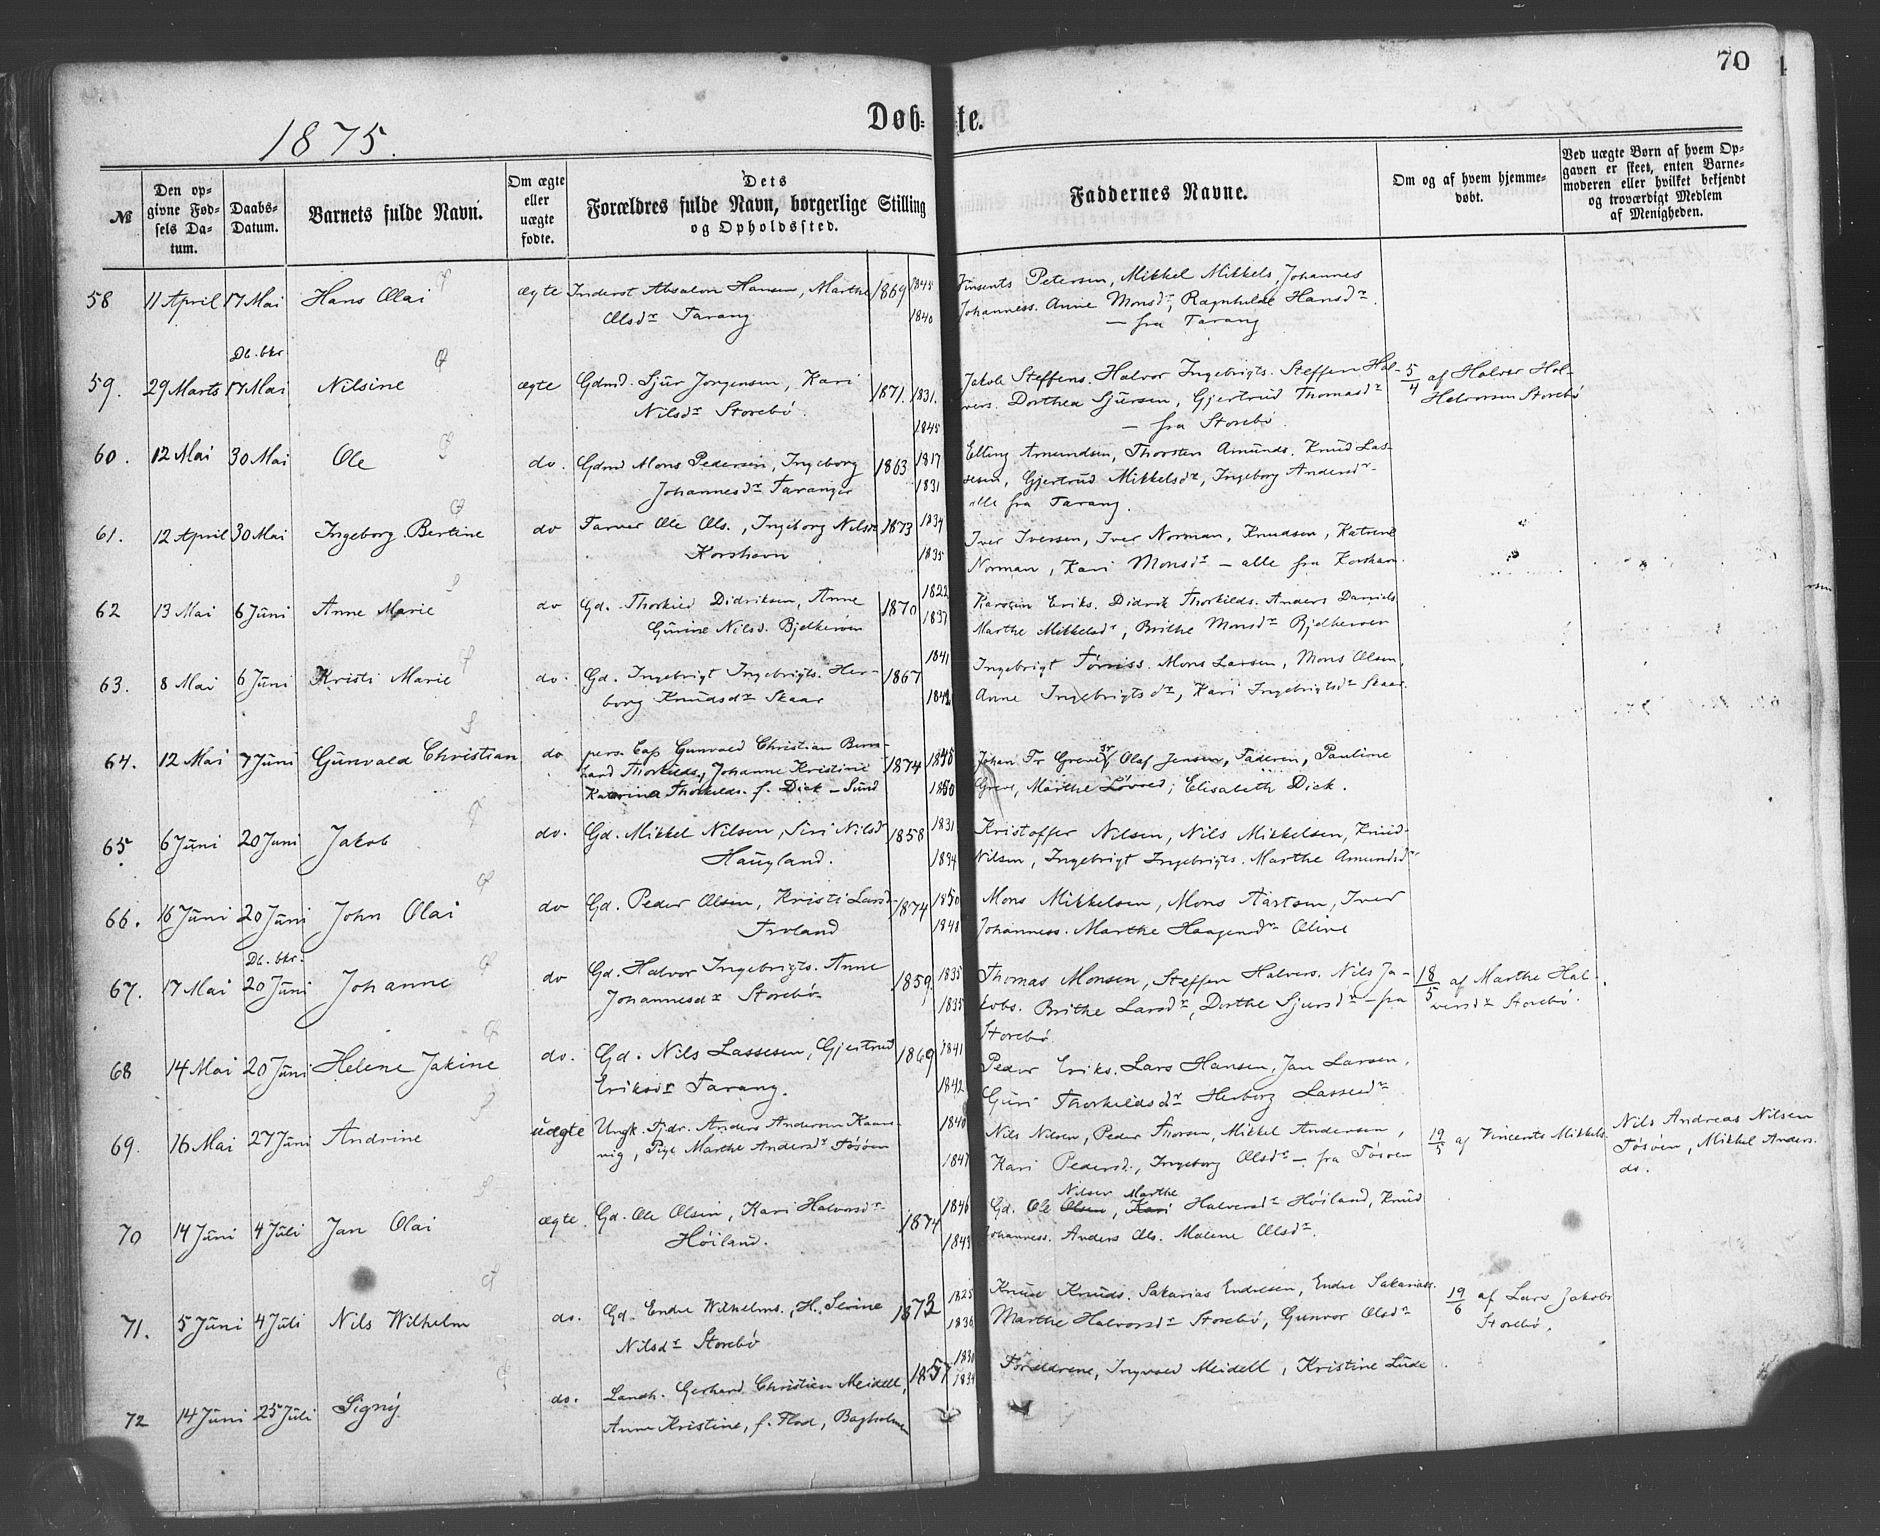 70
1875.
Døb- te.
№
Den opgivne Fødsels Datum.
Daabs-Datum.
Barnets fulde Navn.
Om ægte eller uægte fødte.
Dets Forældres fulde Navn, borgerlige Stilling og Opholdssted.
Faddernes Navne.
Om og af hvem hjemmedøbt.
Ved uægte Børn af hvem Opgaven er skeet, enten Barnemoderen eller hvilket bekjendt og troværdigt Medlem af Menigheden.
58 11 April 17 Mai Hans Olai ægte Inderst Absalon Hansen, Marthe 1869 1845
Olsdr Tarang 1840
Vinsents Petersen, Mikkel Mikkels, Johannes
Johanness. Anne Monsdr, Ragnhilde Hansdr.
— fra Tarang
Db. bkr
59. 29 Marts 17 Mai Nilsine ægte Gdmd. Sjur Jorgensen, Kari 1871. 1831.
Nilsdr Storebø. 1845
Jakob Steffens. Halvor Ingebrigts. Steffen Hal-
vors. Dorthea Sjursen, Gjertrud Thomasdr
— fra Storebø.
5/4 af Halvor Hal-
Halvorsen Storebø
60. 12 Mai 30 Mai Ole do. Gdmd Mons Pedersen, Ingeborg 1863 1817
Johannesdr Taranger 1831
Elling Amundsen, Thorsten Amunds. Knud Las-
sesen, Gjertrud Mikkelsdr, Ingeborg Andersdr.
alle fra Tarang.
61. 12 April 30 Mai Ingeborg Bertine do Farver Ole Ols., Ingeborg Nilsdr 1873 1834
Korshavn 1835
Iver Iversen, Iver Norman, Knudsen, Katrine
Norman, Kari Monsdr — alle fra Korshavn.
62 13 Mai 6 Juni Anne Marie do Gd. Thorkild Didriksen, Anne 1870 1822
Gurine Nilsd. Bjelkerøen 1837
Karsten Eriks. Didrik Thorkilds. Anders Daniels
Marthe Mikkelsdr, Brithe Monsdr Bjelkerøen
63. 8 Mai 6 Juni Kristi Marie do. Gd. Ingebrigt Ingebrigts. Her- 1867 1841
borg Knudsdr Skaar 1842
Ingebrigt Tørriss. Mons Larsen, Mons Olsen,
Anne Ingebrigtsdr, Kari Ingebrigtsdr Skaar.
64. 12 Mai 7 Juni Gunvald Christian do pers. Cap Gunvald Christian Bern-
hard Thorkilds., Johanne Kristine 1874 1845
Katrina Thorkilds. f. Dick — Sund 1850
Johan Fr Greve sr, Olaf Jensen, Faderen, Pauline
Greve, Marthe Løvold, Elisabeth Dick.
65 6 Juni 20 Juni Jakob do. Gd. Mikkel Nilsen, Siri Nilsdr 1858 1831
Haugland. 1834
Kristoffer Nilsen, Nils Mikkelsen, Knud-
Nilsen, Ingebrigt Ingebrigts. Marthe Amundsdr
66. 16 Juni 20 Juni John Olai do Gd. Peder Olsen, Kristi Larsd- 1874 1850
Troland 1848
Mons Mikkelsen, Mons Aartsen, Iver
Johanness. Marthe Haagensdr Oline
Db. bkr.
67. 17 Mai 20 Juni Johanne do Gd. Halvor Ingebrigts. Anne 1859 1835
Johannesdr Storebø 1835
Thomas Monsen, Steffen Halvors. Nils Ja-
kobs. Brithe Larsdr, Dorthe Sjursdr — fra
Storebø
18/5 af Marthe Hal-
vorsdr Storebø.
68 14 Mai 20 Juni Helene Jakine do. Gd. Nils Lassesen, Gjertrud 1869 1841
Eriksdr Tarang. 1842
Peder Eriks. Lars Hansen, Jan Larsen,
Guri Thorkildsdr Herborg Lassesdr
69. 16 Mai 27 Juni Andrine uægte Ungk. Fdr. Anders Andersen Kaars- 1840
vig, Pige Marthe Andersdr Tøsøen 1847
Nils Nilsen, Peder Thorsen, Mikkel Andersen,
Kari Pedersd., Ingeborg Olsdr — fra Tøsøen
19/5 af Vincents Mikkels.
Nils Andreas Nilsen
Tøsøen, Mikkel Anders.
do.
70 14 Juni 4 Juli Jan Olai ægte. Gd. Ole Olsen, Kari Halvorsdr- 1874 1846
Høiland. 1843
Nilsen Marthe
Gd. Ole Olsen, Kari Halvorsdr Høiland, Knud
Johanness. Anders Ols. Malene Olsdr.
71. 5 Juni 4 Juli Nils Wilhelm do. Gd. Endre Wilhelms., H. Serine 1873 1825
Nilsdr Storebø 1836
Knud Knuds. Sakarias Endresen, Endre Sakariass.
Marthe Halvorsdr Storebø, Gunvor Olsdr
19/6 af Lars Jakobs
Storebø.
72 14 Juni 25 Juli Signy do. Landh. Gerhard Christian Meidell, 1857 1830
Anne Kristine, f. Flod, Bagholmen 1834
Forældrene, Ingvald Meidell, Kristine Lude